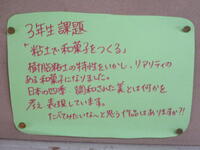 3年生課題
「粘土で和菓子をつくる」
樹脂粘土の特性をいかし、リアリティの
ある和菓子になりました。
日本の四季 調和された美とは何かを
考え表現しています。
たべてみたいな〜と思う作品はありますか?!